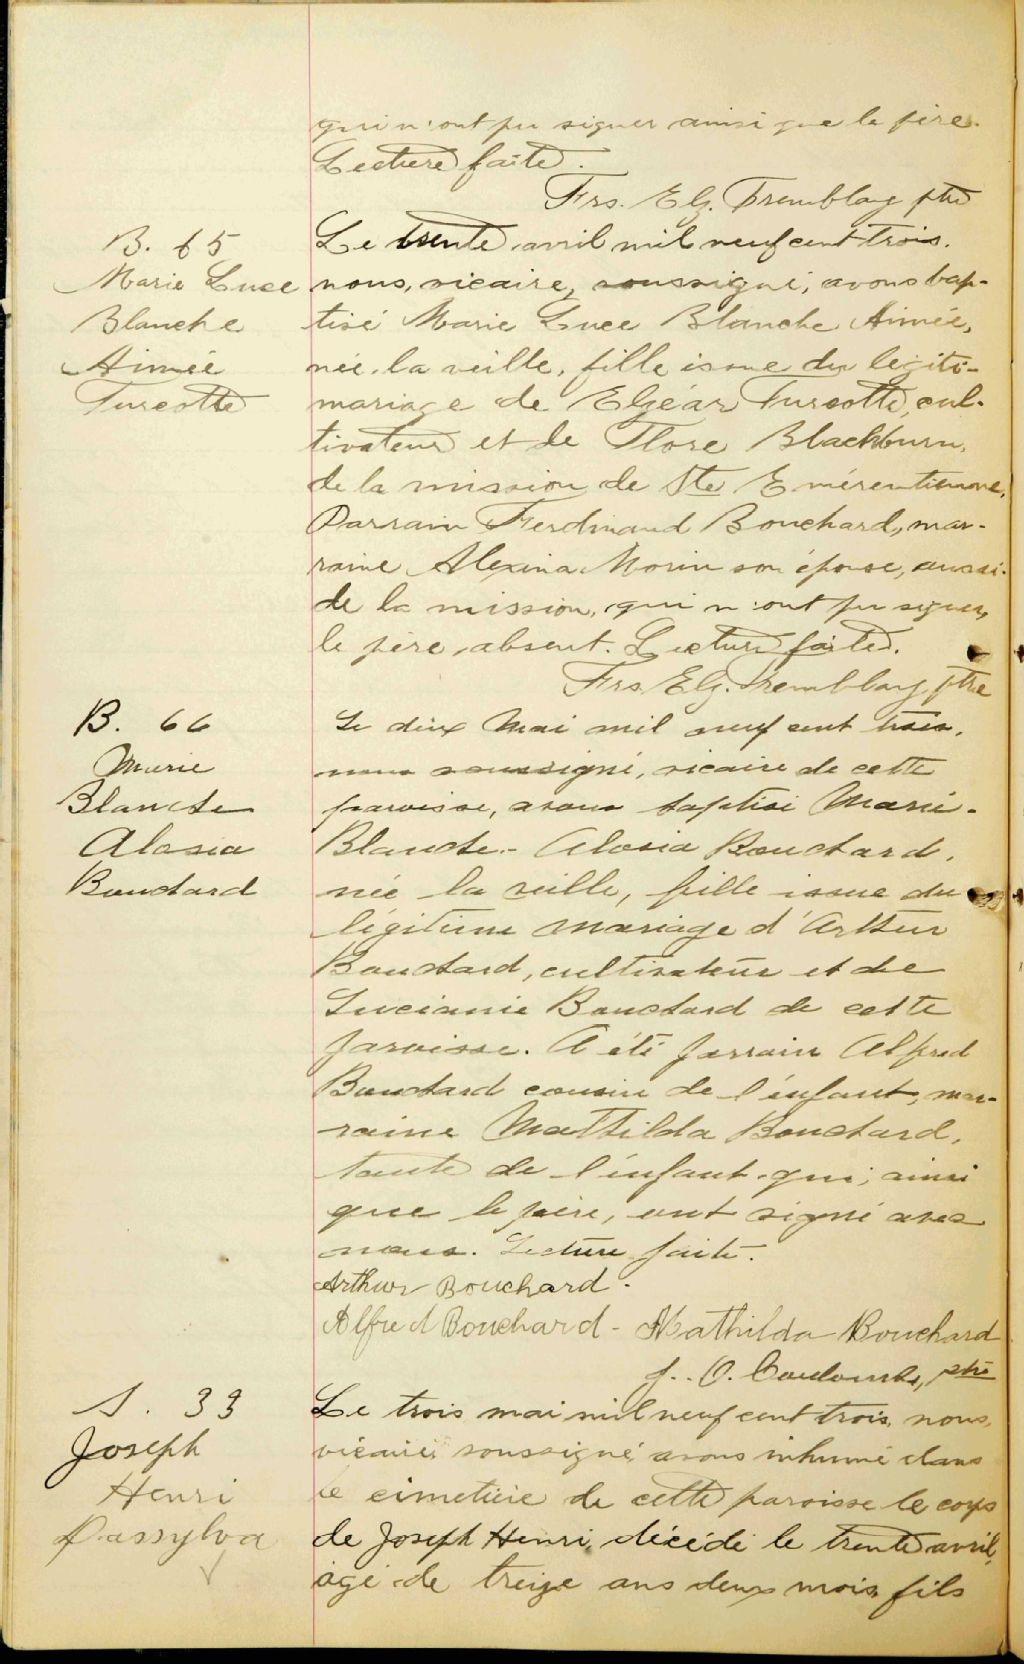 qui n'ont pu signer ainsi que le père.
Lecture faite.
Frs. Elz. Tremblay ptre
B. 65
Marie Luce
Blanche
Aimée
Turcotte
Le trente avril mil neuf cent trois,
nous, vicaire, soussigné, avons bap-
tisé Marie Luce Blanche Aimée,
née la veille, fille issue du légiti-
mariage de Elzéar Turcotte, cul-
tivateur et de Flore Blackburn,
de la mission de Ste Emérentienne,
Parrain Ferdinand Bouchard, mar-
raine Alexina Morin son épouse, aussi
de la mission, qui n'ont pu signer,
le père absent. Lecture faite.
Frs. Elz. Tremblay ptre
B. 66
Marie
Blanche
Alosia
Bouchard
Le deux Mai mil neuf cent trois,
nous soussigné, vicaire de cette
paroisse, avons baptisé Marie-
Blanche-Alosia Bouchard,
née la veille, fille issue du
légitime mariage d'Arthur
Bouchard, cultivateur et de
Luciania Bouchard de cette
paroisse. A été parrain Alfred
Bouchard cousin de l'enfant, mar-
raine Mathilda Bouchard,
tante de l'enfant qui, ainsi
que le père, ont signé avec
nous. Lecture faite.
Arthur Bouchard.
Alfred Bouchard - Mathilda Bouchard
J. O. Coulombe, ptre
S. 33
Joseph
Henri
Dassylva
Le trois mai mil neuf cent trois, nous,
vicaire soussigné avons inhumé dans
le cimetière de cette paroisse le corps
de Joseph Henri, décédé le trente avril,
âgé de treize ans deux mois, fils